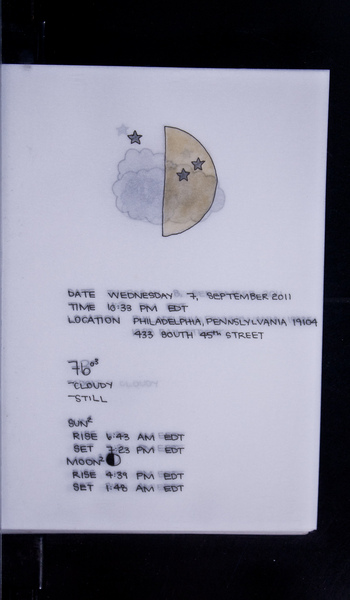 DATE WEDNESDAY 7, SEPTEMBER 2011
TIME 10:33 PM EDT
LOCATION PHILADELPHIA, PENNSLYLVANIA, 19104
433 SOUTH 45th STREET
76°
CLOUDY
STILL
SUN
RISE 6:43 AM EDT
SET 7:23 PM EDT
MOON
RISE 4:39 PM EDT
SET 1:48 AM EDT